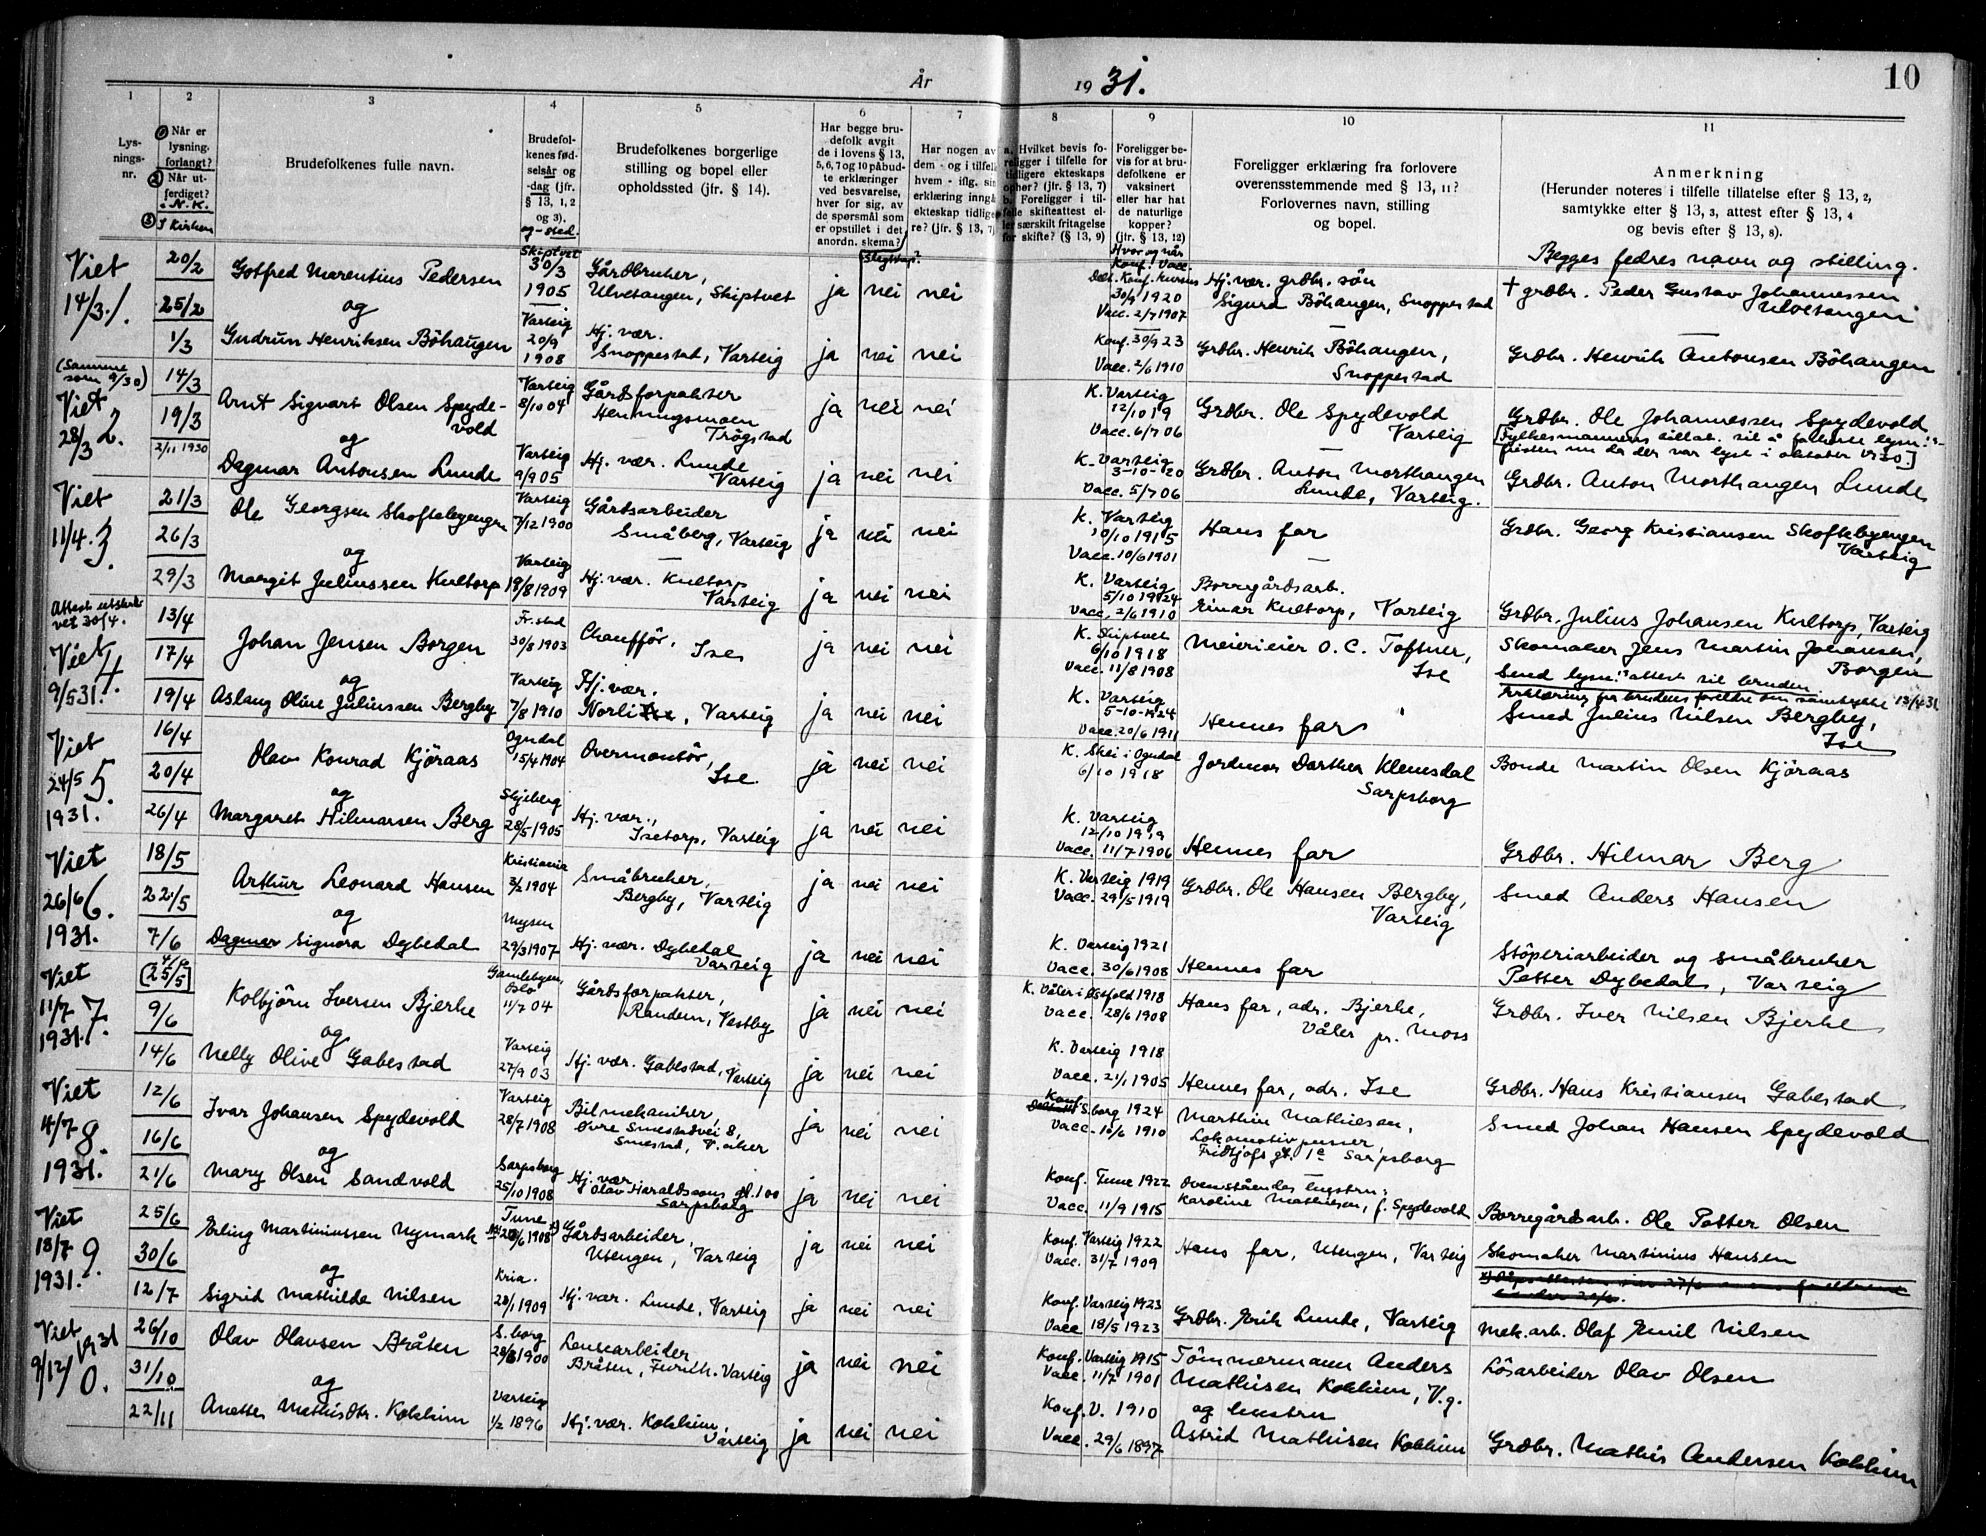 År 1931.
10
1 2 3 4 5 6 7 8 9 10 11
Lys-
nings-
nr.
Når er
lysning.
forlangt?
Når ut-
ferdiget?
N. K.
I Kirken
Brudefolkenes fulle navn.
Brudefol-
kenes fød-
selsår og
-dag (jfr.
§ 13, 1, 2
og 3).
og -sted.
Brudefolkenes borgerlige
stilling og bopel eller
opholdssted (jfr. § 14).
Har begge bru-
defolk avgit
de i lovens § 13,
5, 6, 7 og 10 påbud-
te erklæringer
ved besvarelse,
hver for sig, av
de spørsmål som
er opstillet i det
anordn. skema?
Slegtskap?
Har nogen av
dem - og i tilfelle
hvem - iflg. sin
erklæring inngått
ekteskap tidlige-
re? (jfr. § 13, 7)
a. Hvilket bevis fo-
religger i tilfelle for
tidligere ekteskaps
ophør? (jfr. § 13, 7)
b. Foreligger i til-
felle skifteattest el-
ler særskilt fritagelse
for skifte? (§ 13, 9)
Foreligger be-
vis for at bru-
defolkene er
vaksinert
eller har hat
de naturlige
kopper?
(jfr. § 13, 12)
Hvor og når
Konf. Vacc.
Foreligger erklæring fra forlovere
overensstemmende med § 13, 11?
Forlovernes navn, stilling
og bopel.
Anmerkning
(Herunder noteres i tilfelle tillatelse efter § 13, 2,
samtykke efter § 13, 3, attest efter § 13, 4
og bevis efter § 13, 8).
Begges fedres navn og stilling.
Viet
14/3 1.
20/2
25/2
1/3
Gotfred Marentius Pedersen
og
Gudrun Henriksen Böhaugen
Skiptvet
30/3
1905
Varteig
20/9
1908
Gårdbruker,
Ulvetangen, Skiptvet
Hj. vær.
Snoppestad, Varteig
ja nei nei
ja nei nei
30/9 1920
Vacc. 2/7 1907
Konf. 30/9 23
Vacc. 2/6 1910
Hj. vær. grdbr. sön
Sigurd Böhaugen, Snoppestad
Grdbr. Henrik Böhaugen,
Snoppestad
† grdbr. Peder Gustav Johannessen
Ulvetangen
Grdbr. Henrik Antonsen Böhaugen
(Samme
som 9/30)
Viet
28/3 2.
14/3
19/3
2/11 1930
Arnt Sigvart Olsen Spyde-
vold
og
Dagmar Antonsen Lunde
Varteig
8/10 04
Varteig
9/9 05
Gårdsforpakter
Henningsmoen
Trögstad
Hj. vær. Lunde
Varteig
ja nei nei
ja nei nei
K. Varteig
12/10 19
Vacc. 6/7 06
K. Varteig
3-10-20
Vacc. 5/7 06
Grdbr. Ole Spydevold
Varteig
Grdbr. Anton Morthaugen
Lunde, Varteig.
Grdbr. Ole Johannessen Spydevold
Grdbr. Anton Morthaugen Lunde
Viet
11/4. 3
21/3
26/3
29/3
Ole Georgsen Skoftebyengen
og
Margit Juliussen Kultorp
Varteig
7/12 1900
Varteig
19/8 1909
Gårdsarbeider
Småberg, Varteig
Hj. vær. Kultorp
Varteig
ja nei nei
ja nei nei
K. Varteig
10/10 1915
Vacc. 10/6 1901
K. Varteig
5/10 1924
Vacc. 2/6 1910
Hans far
Borregårdsarb.
Einar Kultorp, Varteig
Grdbr. Georg Kristiansen Skoftebyengen
Varteig
Grdbr. Julius Johansen Kultorp, Varteig
Attest utskre-
vet 30/4.
Viet 4.
9/5 31.
13/4
17/4
19/4
Johan Jensen Borgen
og
Aslaug Oline Juliussen Bergby
Fr.stad
30/8 1903
Varteig
7/8 1910
Chaufför,
Ise
Hj. vær.
Norli, Varteig
ja nei nei
ja nei nei
K. Skiptvet
6/10 1918
Vacc. 11/8 1908
K. Varteig
5-10-1924
Vacc. 20/6 1911
Meierieier O. C. Toftner,
Ise
Hennes far
Skomaker Jens Martin Johansen,
Borgen
Send lysn.s attest til bruden
Erklæring fra brudens foreldre om samtykke 13/4 31
Smed Julius Nilsen Bergby,
Ise
Viet
24/5 5
1931.
16/4
20/4
26/4
Olav Konrad Kjöraas
og
Margaret Hilmarsen Berg
Ogndal
15/4 1904
Skjeberg
28/5 1905
Overmontör,
Ise.
Hj. vær.,
Isetorp, Varteig
ja nei nei
ja nei nei
K. Skei i Ogndal
6/10 1918
K. Varteig
12/10 1919
Vacc. 11/7 1906
Jordmor Dorthea Klemsdal
Sarpsborg
Hennes far
Bonde Martin Olsen Kjöraas
Grdbr. Hilmar Berg
Viet
26/6 6.
1931.
18/5
22/5
7/6
Arthur Leonard Hansen
og
Dagmar Signora Dybedal
Kristiania
3/2 1904
Mysen
29/3 1907
Småbruker,
Bergby, Varteig
Hj. vær. Dybedal
Varteig
ja nei nei
ja nei nei
K. Varteig 1919
Vacc. 29/5 1919
K. Varteig 1921
Vacc. 30/6 1908
Grdbr. Ole Hansen Bergby,
Varteig
Hennes far
Smed Anders Hansen
Stöperiarbeider og småbruker
Petter Dybedal, Varteig
Viet
11/7 7
1931.
4/6
[25/5]
9/6
14/6
Kolbjörn Iversen Bjerke
og
Nelly Olive Gabestad
Gamlebyen,
Oslo
11/7 04
Varteig
27/9 03
Gårdsforpakter,
Randem, Vestby
Hj. vær. Gabestad, Varteig
ja nei nei
ja nei nei
K. Våler i Østfold 1918
Vacc. 28/6 1908
K. Varteig 1918
Vacc. 21/1 1905
Hans far, adr. Bjerke,
Våler pr. Moss
Hennes far, adr. Ise
Grdbr. Iver Nilsen Bjerke
Grdbr. Hans Kristiansen Gabestad
Viet
14/7 8.
1931.
12/6
16/6
21/6
Ivar Johansen Spydevold
og
Mary Olsen Sandvold
Varteig
28/7 1908
Sarpsborg
25/10 1908
Bilmekaniker,
Øvre Smestadvei 8,
Smestad, V. Aker
Hj. vær.
Olav Haraldssons gt. 100
Sarpsborg
ja nei nei
ja nei nei
Konf.
S.borg 1924
Vacc. 10/6 1910
Konf. Tune 1922
Vacc. 11/9 1915
Marthin Mathiesen,
Lokomotivpusser
Fridtjofs gt. 1c Sarpsborg
Ovenståendes hustru:
Karoline Mathiesen, f. Spydevold
Smed Johan Hansen Spydevold
Borregårdsarb. Ole Petter Olsen
Viet
18/7 9.
1931.
25/6
30/6
12/7
Erling Martiniussen Nymark
og
Sigrid Mathilde Nilsen
Tune
1908
Kria.
28/1 1909
Gårdsarbeider,
Utengen, Varteig
Hj. vær. Lunde, Varteig
ja nei nei
ja nei nei
Konf. Varteig 1922
Vacc. 31/7 1909
Konf. Varteig 1923
Vacc. 18/5 1923
Hans far, Utengen, Varteig
Grdbr. Erik Lunde, Varteig
Skomaker Martinius Hansen
Mek. arb. Olaf Emil Nilsen
Viet
9/12 1931
10.
26/10
31/10
22/11
Olav Olavsen Bråten
og
Anette Mathisdtr. Kokkim
S.borg
1900
Varteig
1/2 1896
Lensearbeider
Bråten, Furuh. Varteig
Hj. vær. Kokkim,
Varteig
ja nei nei
ja nei nei
Konf. Varteig 1915
Vacc. 11/7 1901
Konf. V. 1910
Vacc. 29/6 1897
Tömmermann Anders
Mathisen Kokkim, V.g.
og hustru
Astrid Mathisen Kokkim
Lösarbeider Olav Olsen
Grdbr. Mathis Andersen Kokkim